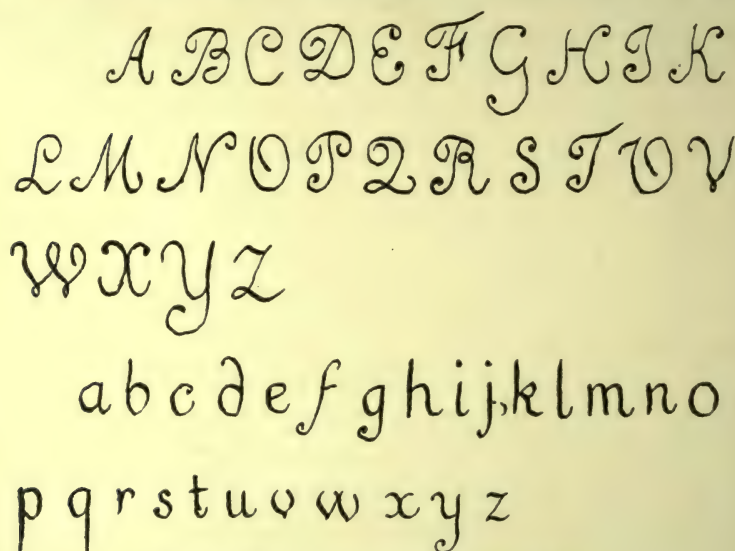 A B C D E F G H I K
L M N O P Q R S T U V
W X Y Z
a b c d e f g h i j, k l m n o
p q r s t u v w x y z